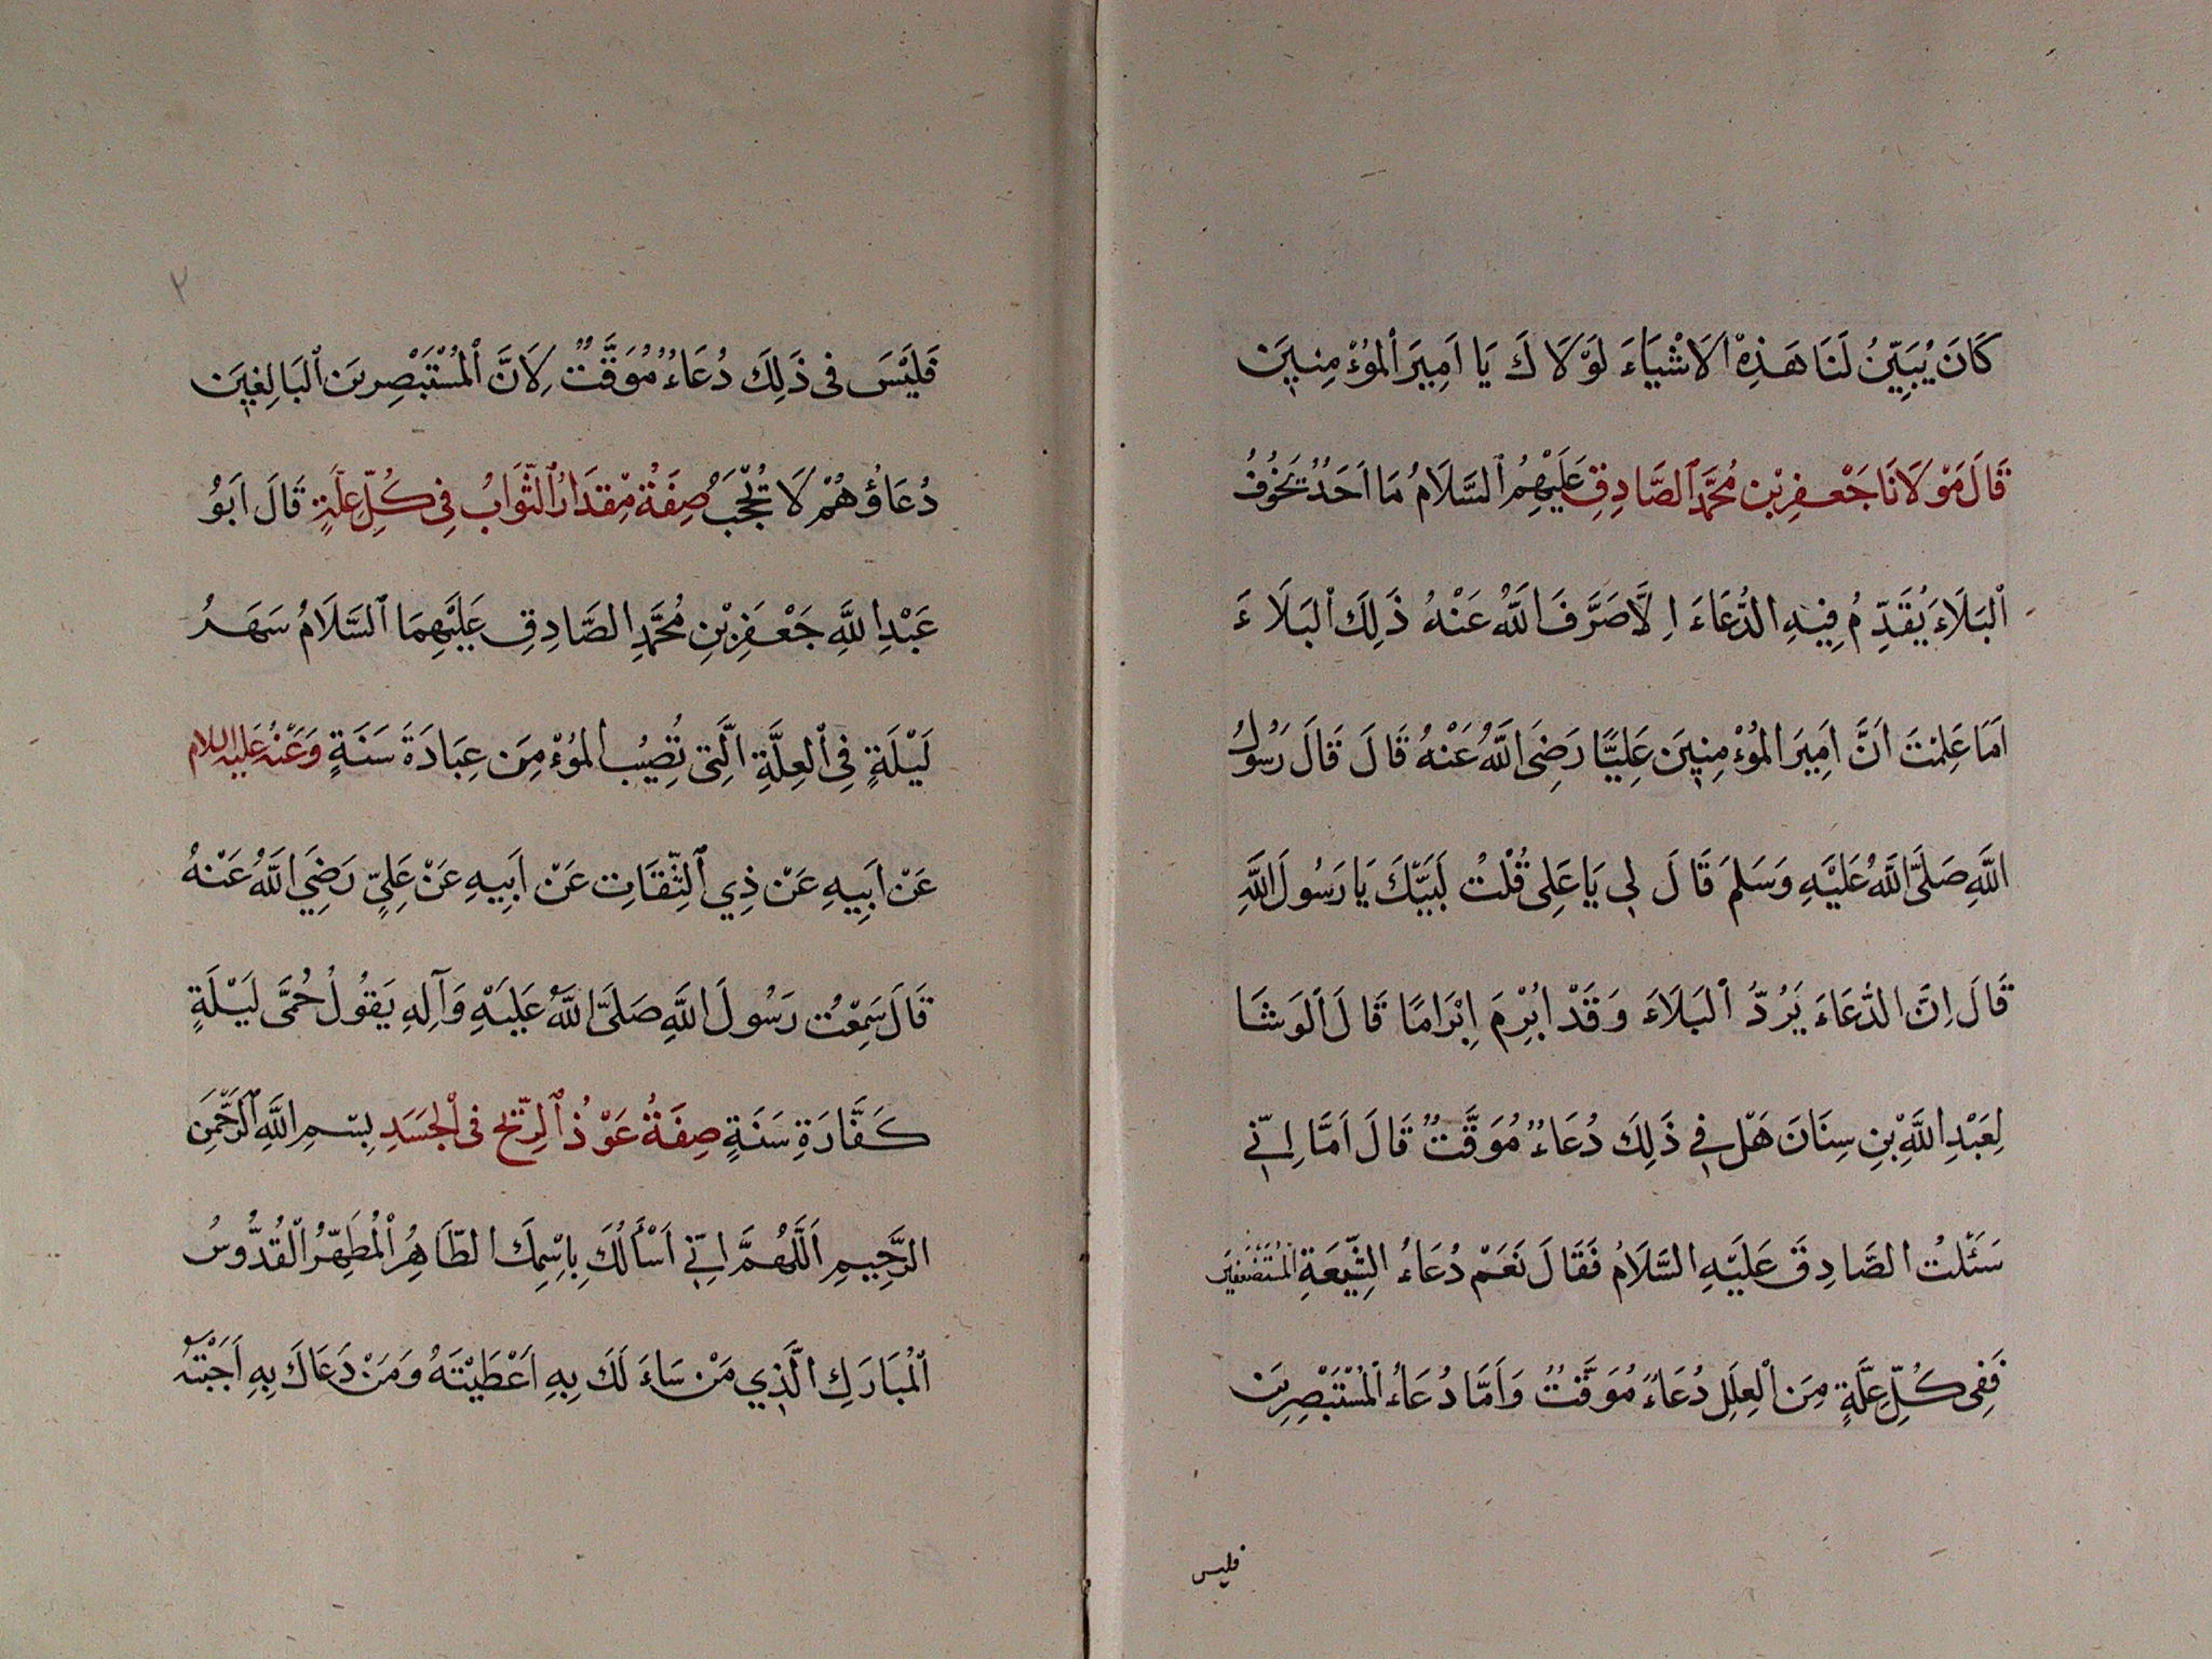 كَانَ يُبَيِّنُ لَنَا هَذِهِ الاَشْيَاءَ لَوْلَاكَ يَا اَمِيرَ المُؤْمِنِينَ
قَالَ مَوْلَانَا جَعْفَرِ بْنِ مُحَمَّدٍ الصَّادِقِ عَلَيْهِمُ السَّلَامُ مَا اَحَدٌ يَخُوفُ
البَلَاءَ يُقَدِّمُ فِيهِ الدُّعَاءَ اِلَّا صَرَّفَ اللَّهُ عَنْهُ ذَلِكَ البَلَاءَ
اَمَا عَلِمْتَ اَنَّ اَمِيرَ المُؤْمِنِينَ عَلِيًّا رَضِيَ اللَّهُ عَنْهُ قَالَ قَالَ رَسُولُ
اللَّهِ صَلَّى اللَّهُ عَلَيْهِ وَسَلَمَ قَالَ لِي يَا عَلِي قُلْتُ لَبَيْكَ يَا رَسُولَ اللَّهِ
قَالَ اِنَّ الدُّعَاءَ يَرُدُّ البَلَاءَ وَقَدْ اُبْرِمَ اِبْرَامًا قَالَ الوَشَا
لِعَبْدِ اللَّهِ بْنِ سِنَانَ هَلْ فِي ذَلِكَ دُعَاءٌ مُوَقَّتٌ قَالَ اَمَّا اِنِّي
سَئَلْتُ الصَّادِقَ عَلَيْهِ السَّلَامُ فَقَالَ نَعَمْ دُعَاءُ الشِّيعَةِ المُسْتَضْعَفِينَ
فَفِي كُلِّ عِلَّةٍ مِنَ الْعِلَلِ دُعَاءً مُوَقَّتٌ وَاَمَّا دُعَاءُ المُسْتَبْصِرِينَ
فليس
٢
فَلَيْسَ فِى ذَلِكَ دُعَاءٌ مُوَقَّتٌ لِاَنَّ المُسْتَبْصِرِينَ البَالِغِينَ
دُعَاؤُهُمْ لَا تُحْجَبُ صِفَةُ مِقْدَارُ الثَّوَابُ فِى كُلِّ عِلَّةٍ قَالَ اَبُو
عَبْدِ اللَّهِ جَعْفَرِ بْنِ مُحَمَّدِ الصَّادِقِ عَلَيْهِمَا السَّلَامُ سَهَرُ
لَيْلَةٍ فِى العِلَّةِ الَّتِى تُصِيُب المُؤْمِنَ عِبَادَةَ سَنَةٍ وَعَنْهُ عَلَيْهِ السلام
عَنْ اَبِيهِ عَنْ ذِي الثِّقَاتِ عَنْ اَبِيهِ عَنْ عَلِيٍّ رَضِيَ اللَّهُ عَنْهُ
قَالَ سَمِعْتُ رَسُولَ اللَّهِ صَلَّى اللَّهُ عَلَيْهِ وَآلِهِ يَقُولُ حُمَّى لَيْلَةٍ
كَفَّارَةِ سَنَةٍ صِفَةُ عَوْذُ الرِّيْحِ فِى الْجَسَدِ بِسْمِ اللَّهِ الرَّحْمَنِ
الرَّحِيمِ اَللَّهُمَّ اِنِّي اَسْأَلُكَ بِاِسْمِكَ الطَّاهِرُ المُطَهِّرُ القُدُّوسُ
المُبَارَكِ الَّذِي مَنْ سَاءَلَكَ بِهِ اَعْطَيْتَهُ وَمَنْ دَعَاكَ بِهِ اَجَبْتَهُ